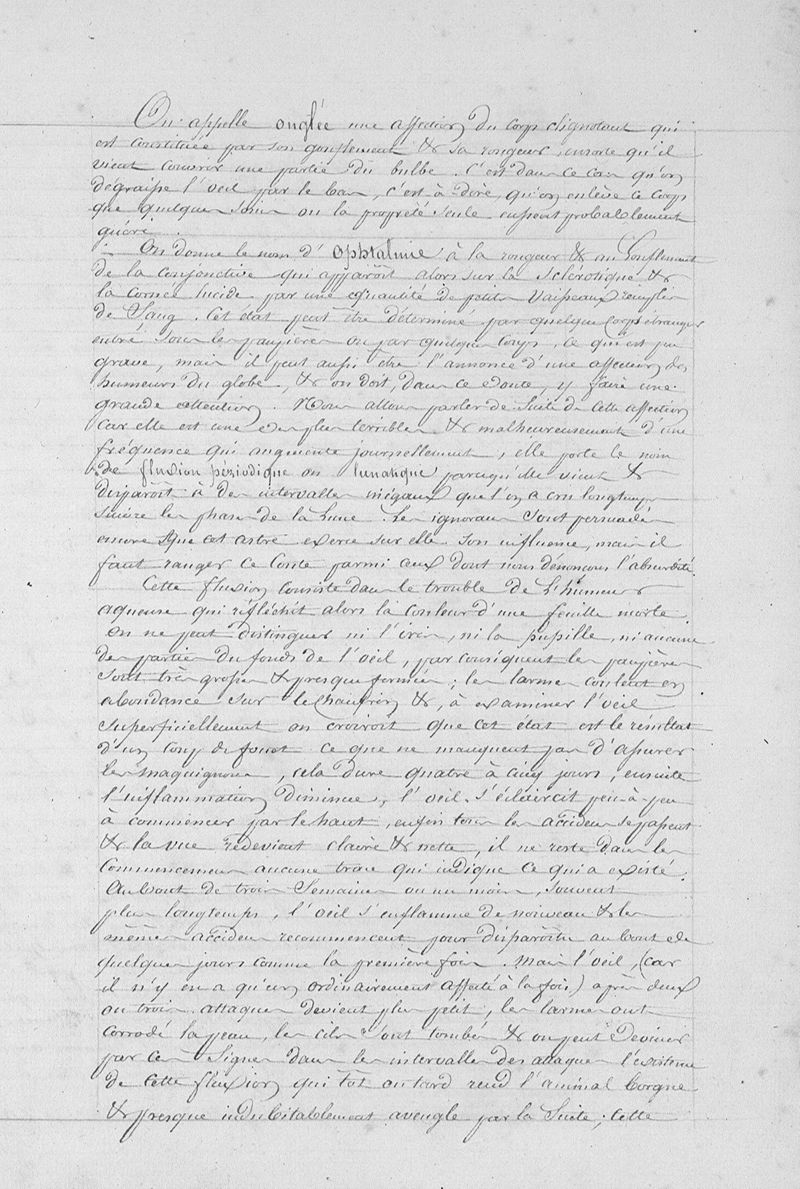 On appelle onglée une affection du corps clignotant qui
est constituée par son gonflement & sa rougeur, ensorte qu'il
vient couvrir une partie du bulbe. C'est dans ce cas qu'on
dégraisse l'oeil par le bas, c'est à dire, qu'on enlève ce corps
que quelques soins ou la propreté seule eussent probablement
guéri.
On donne le nom d'Ophtalmie à la rougeur & au Gonflement
de la conjonctive qui apparoît alors sur la Sclérotique &
la Cornée lucide par une quantité de petits Vaisseaux remplis
de Sang. Cet état peut être déterminé par quelque Corps étranger
entré sous les paupières ou par quelque coup, ce qui est peu
grave, mais il peut aussi être l'annonce d'une affection des
humeurs du globe, & on doit, dans ce doute, y faire une
grande attention. Nous allons parler de suite de cette affection
car elle est une des plus terribles & malheureusement d'une
fréquence qui augmente journellement, elle porte le nom
de fluxion périodique ou lunatique parcequ'elle vient &
disparoît à des intervalles inégaux que l'on a cru longtemps
suivre les phases de la Lune. Les ignorans sont persuadés
encore que cet astre exerce sur elle son influence, mais il
faut ranger ce Conte parmi ceux dont nous dénoncons l'absurdité.
Cette fluxion consiste dans le trouble de l'humeur
aqueuse qui réfléchit alors la couleur d'une feuille morte.
On ne peut distinguer ni l'iris, ni la pupille, ni aucune
des parties du fonds de l'oeil, par conséquent les paupières
sont très grosses & presque fermées; les larmes coulent en
abondance sur le Chanfrein &, à examiner l'oeil
superficiellement on croiroit que cet état est le résultat
d'un coup de fouet ce que ne manquent pas d'assurer
les maquignons, cela dure quatre à cinq jours, ensuite
l'inflammation diminue, l'oeil s'éclaircit peu-à-peu
à commencer par le haut, enfin tous les accidens se passent
& la vue redevient claire & nette, il ne reste dans les
Commencemens aucune trace qui indique ce qui a existé.
Au bout de trois Semaines ou un mois, souvent
plus longtemps, l'oeil s'enflamme de nouveau & les
mêmes accidens recommencent pour disparoître au bout de
quelques jours comme la première fois. Mais l'oeil, (car
il n'y en a qu'un ordinairement affecté à la fois) après deux
ou trois attaques devient plus petit, les larmes ont
corrodé la peau, les cils sont tombés & on peut Deviner
par ces Signes dans les intervalles des attaques l'existence
de cette fluxion qui tôt ou tard rend l'animal borgne
& presque indubitablement aveugle par la Suite; Cette